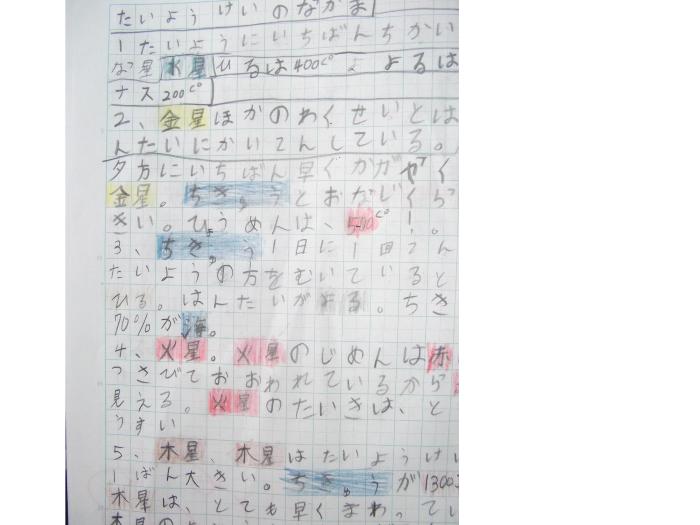 たいようけいのなかま
1たいようにいちばんちかい
な星水星ひるは400c°よるは
ナス200c°
2、金星ほかのわくせいとは
んたいにかいてんしている。
夕方にいちばん早くかがやく
金星。ちきゅうとおなじくら
きい。ひょうめんは、500c°!。
3、ちきゅう1日に1回てん
たいようの方をむいていると
ひる。はんたいがよる。ちき
70%が海。
4、火星。火星のじめんは赤
つさびでおおわれているから
見える。火星のたいきは、と
うすい
5、木星、木星はたいようけい
1ばん大きい。ちきゅうが1300
木星は、とても早くまわってい